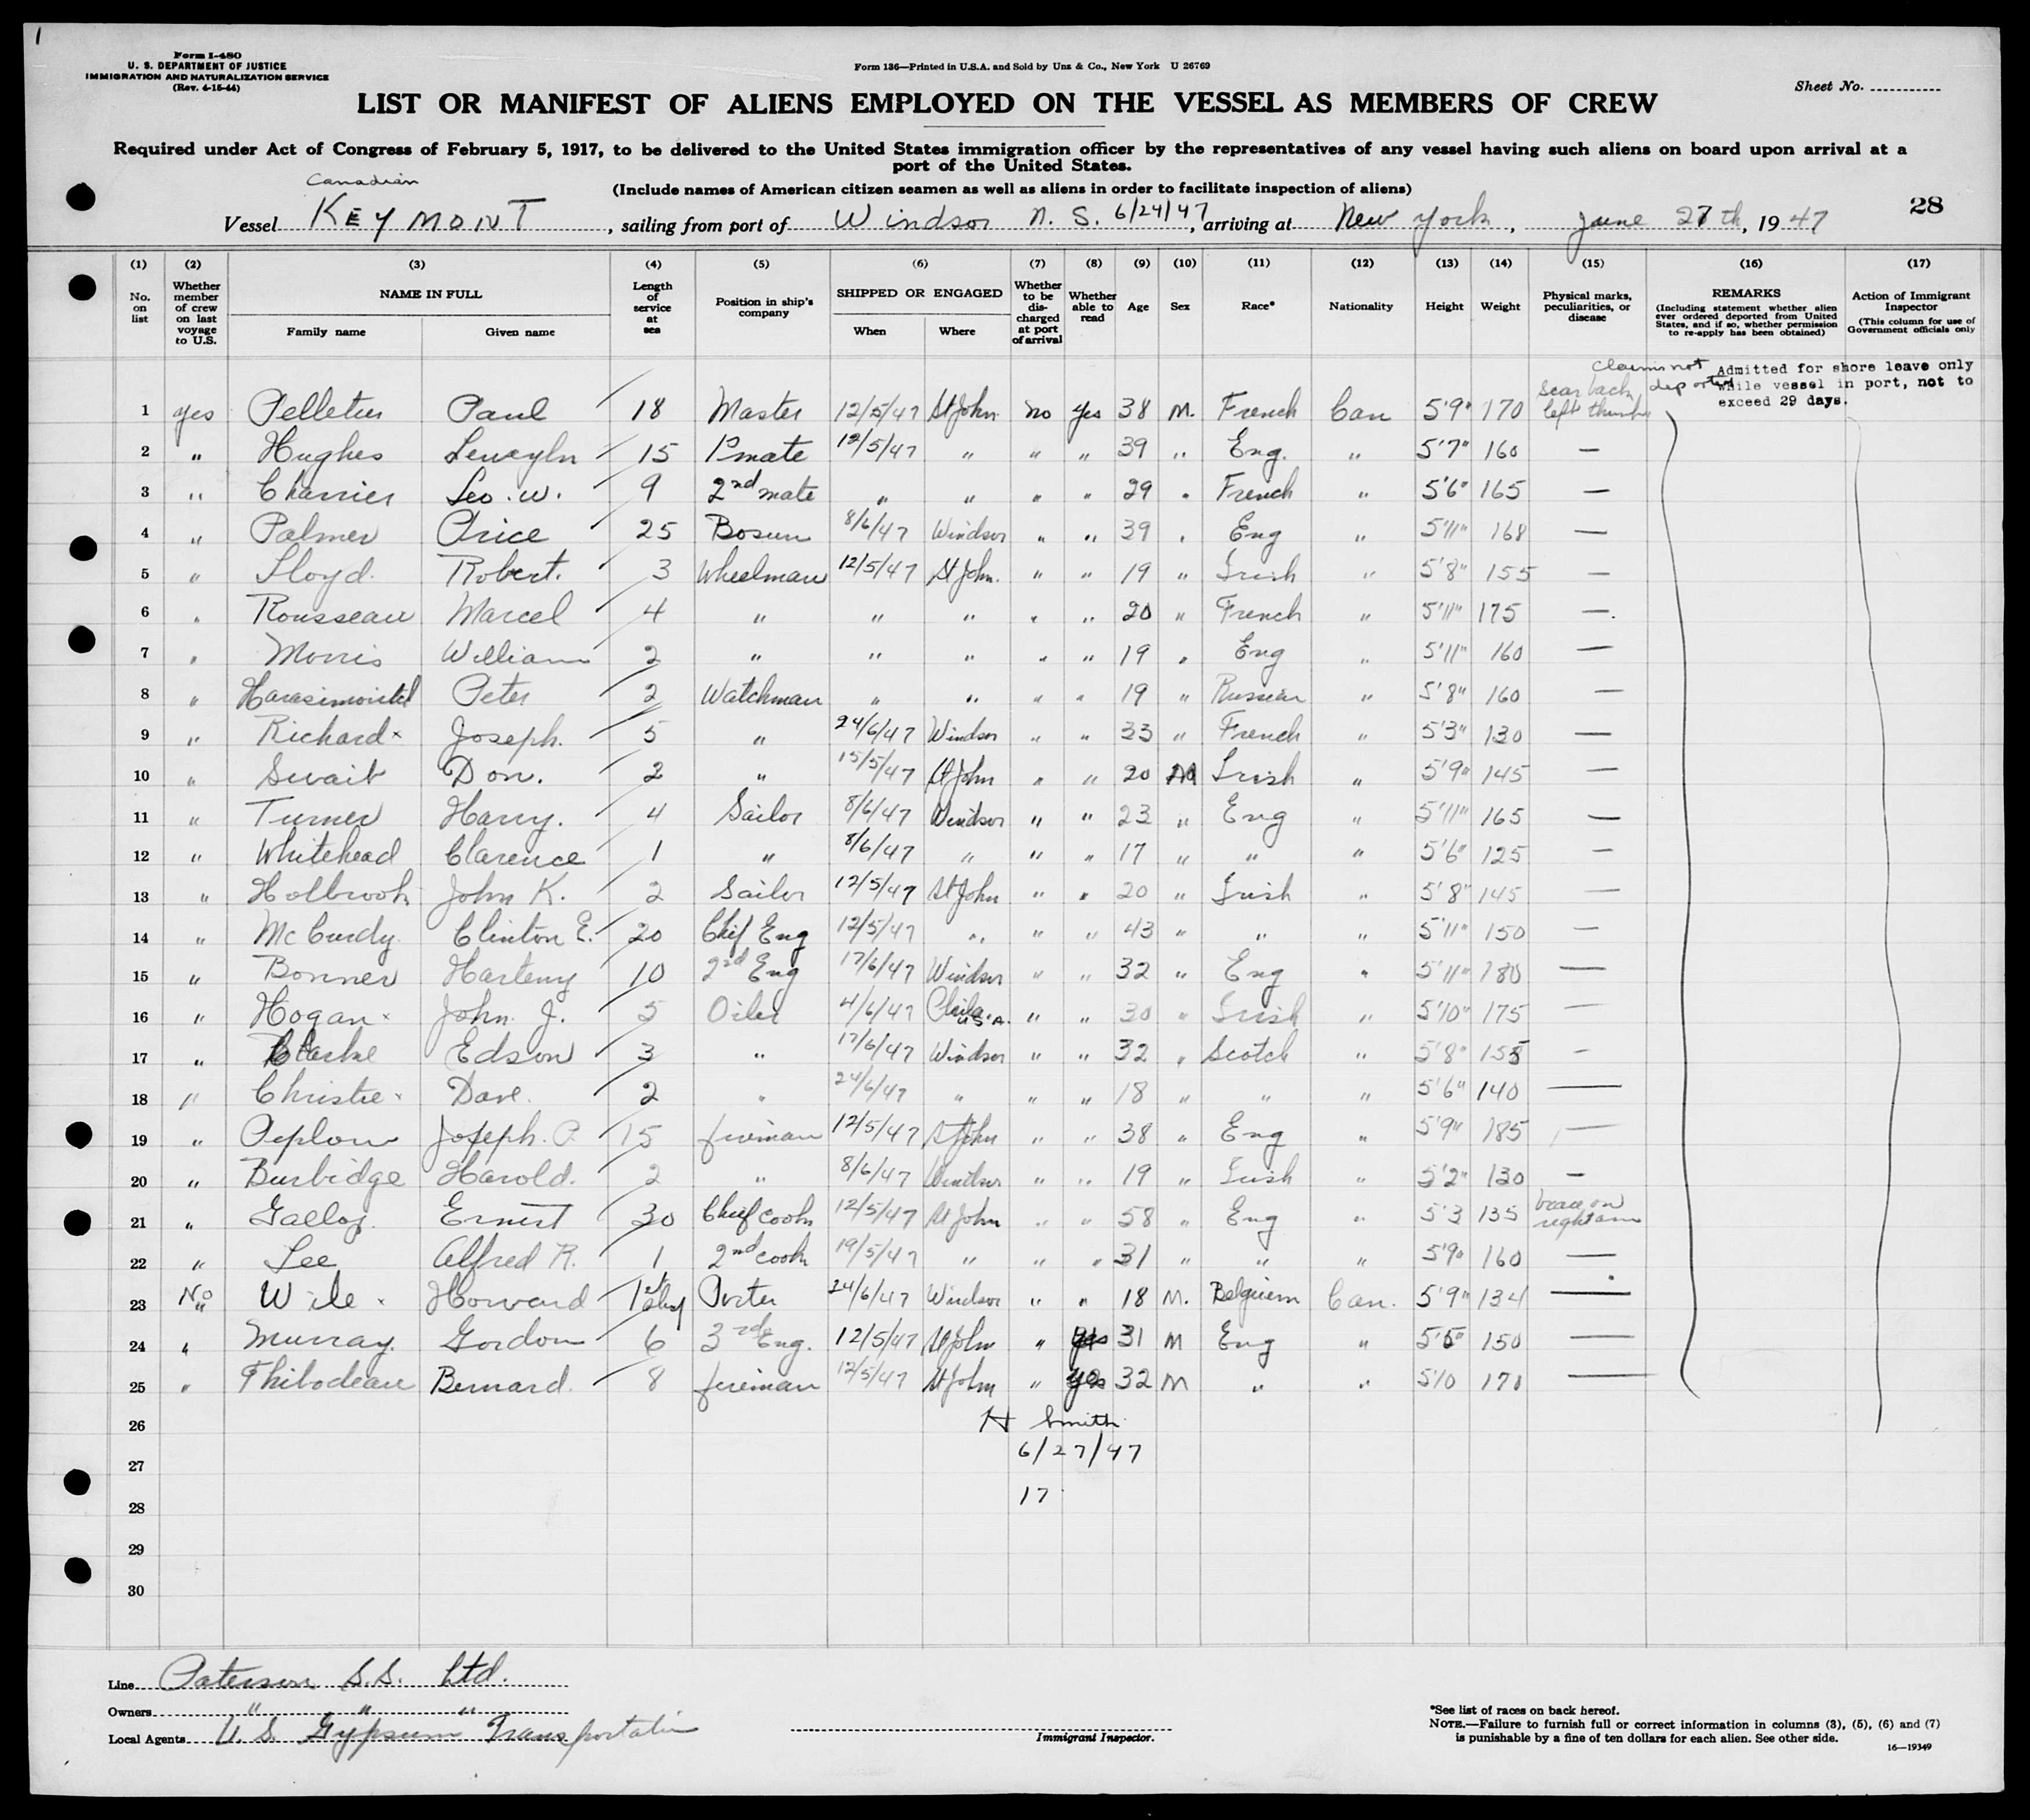 1
Form I-480
U. S. DEPARTMENT OF JUSTICE
IMMIGRATION AND NATURALIZATION SERVICE
(Rev. 4-15-44)
Form 136—Printed in U.S.A. and Sold by Unz & Co., New York U 26769
Sheet No.
LIST OR MANIFEST OF ALIENS EMPLOYED ON THE VESSEL AS MEMBERS OF CREW
Required under Act of Congress of February 5, 1917, to be delivered to the United States immigration officer by the representatives of any vessel having such aliens on board upon arrival at a
port of the United States.
(Include names of American citizen seamen as well as aliens in order to facilitate inspection of aliens)
Canadian
Vessel KEYMONT, sailing from port of Windsor N. S. 6/24/47, arriving at New York, June 27th, 1947
28
(1) (2) (3) (4) (5) (6) (7) (8) (9) (10) (11) (12) (13) (14) (15) (16) (17)
No. on list Whether member of crew on last voyage to U.S. NAME IN FULL Family name Given name Length of service at sea Position in ship's company SHIPPED OR ENGAGED When Where Whether to be discharged at port of arrival Whether able to read Age Sex Race* Nationality Height Weight Physical marks, peculiarities, or disease REMARKS (Including statement whether alien ever ordered deported from United States, and if so, whether permission to re-apply has been obtained) Action of Immigrant Inspector (This column for use of Government officials only)
claims not deported
Admitted for shore leave only
while vessel in port, not to
exceed 29 days.
1 yes Pelletier Paul 18 Master 12/5/47 St John no yes 38 M. French Can 5'9" 170 scar back left thumb
2 " Hughes Leweyln 15 1st mate 12/5/47 " " " 39 " Eng. " 5'7" 160 —
3 " Charrier Leo. W. 9 2nd mate " " " " 29 " French " 5'6" 165 —
4 " Palmer Price 25 Bosun 8/6/47 Windsor " " 39 " Eng " 5'11" 168 —
5 " Lloyd Robert. 3 Wheelman 12/5/47 St John. " " 19 " Irish " 5'8" 155 —
6 " Rousseau Marcel 4 " " " " " 20 " French " 5'11" 175 —
7 " Morris William 2 " " " " " 19 " Eng " 5'11" 160 —
8 " Peter 2 Watchman " " " " 19 " Russian " 5'8" 160 —
9 " Richard x Joseph. 5 " 24/6/47 Windsor " " 33 " French " 5'3" 130 —
10 " Don. 2 " 15/5/47 St John " " 20 M Irish " 5'9" 145 —
11 " Turner Harry. 4 Sailor 8/6/47 Windsor " " 23 " Eng " 5'11" 165 —
12 " Whitehead Clarence 1 " 8/6/47 " " " 17 " " " 5'6" 125 —
13 " Holbrook John K. 2 Sailor 12/5/47 St John " " 20 " Irish " 5'8" 145 —
14 " McCurdy Clinton E. 20 Chief Eng 12/5/47 " " " 43 " " " 5'11" 150 —
15 " Bonner 10 2nd Eng 17/6/47 Windsor " " 32 " Eng " 5'11" 180 —
16 " Hogan x John J. 5 Oiler 4/6/47 Phila. U.S.A. " " 30 " Irish " 5'10" 175 —
17 " Clarke Edson 3 " 17/6/47 Windsor " " 32 " Scotch " 5'8" 155 —
18 " Christie x Dave. 2 " 24/6/47 " " " 18 " " " 5'6" 140 —
19 " Peplow Joseph. P. 15 fireman 12/5/47 St John " " 38 " Eng " 5'9" 185 —
20 " Burbidge Harold. 2 " 8/6/47 Windsor " " 19 " Irish " 5'2" 130 —
21 " Ernest 30 Chief cook 12/5/47 St John " " 58 " Eng " 5'3 135 right arm
22 " Lee Alfred R. 1 2nd cook 19/5/47 " " " 31 " " " 5'9" 160 —
23 No " Wile x Howard 1st Porter 24/6/47 Windsor " " 18 M. Belgium Can. 5'9" 134 —
24 " Murray. Gordon 6 3rd Eng. 12/5/47 St John " yes 31 M Eng " 5'5" 150 —
25 " Thibodeau Bernard. 8 fireman 12/5/47 St John " yes 32 M " " 5'10 171 —
26 H Smith
27 6/27/47
28 17
29
30
Line Paterson S.S. Ltd.
Owners " " "
Local Agents U. S. Gypsum Transportation
Immigrant Inspector.
*See list of races on back hereof.
NOTE.—Failure to furnish full or correct information in columns (3), (5), (6) and (7)
is punishable by a fine of ten dollars for each alien. See other side.
16—19349